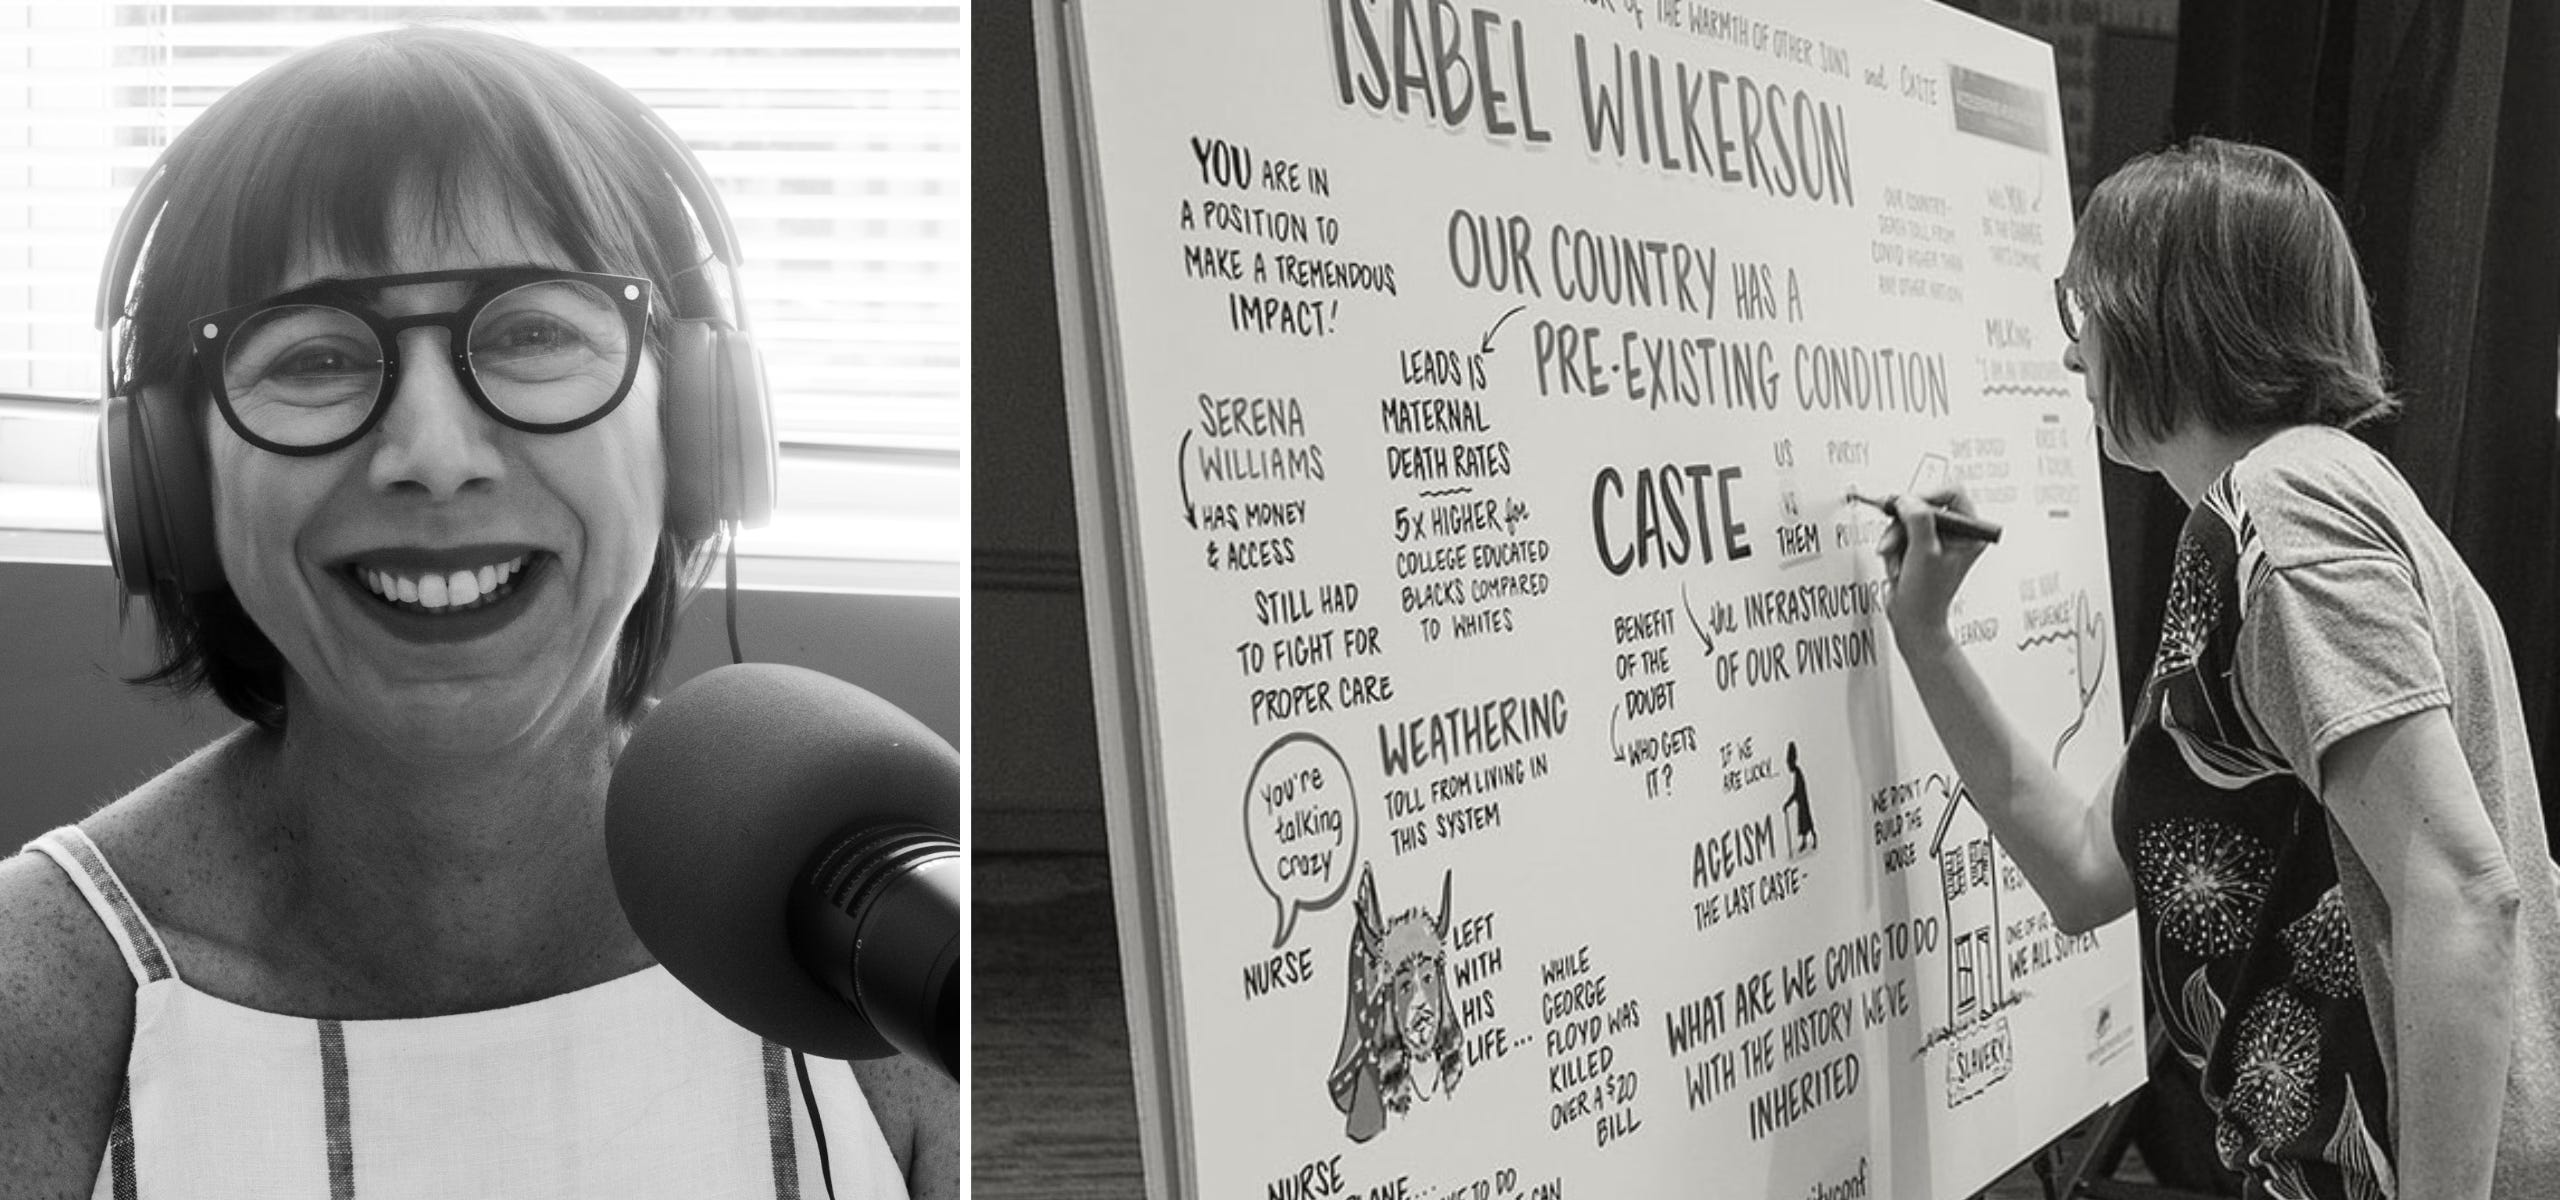 OF THE WARMTH OF OTHER SUNS and CASTE
ISABEL WILKERSON
YOU ARE IN
A POSITION TO
MAKE A TREMENDOUS
IMPACT!
OUR COUNTRY HAS A
PRE-EXISTING CONDITION
LEADS IS
MATERNAL
DEATH RATES
5X HIGHER for
COLLEGE EDUCATED
BLACKS COMPARED
TO WHITES
SERENA
WILLIAMS
HAS MONEY
& ACCESS
STILL HAD
TO FIGHT FOR
PROPER CARE
OUR COUNTRY-
DEATH TOLL FROM
COVID HIGHER THAN
ANY OTHER NATION
WILL YOU
BE THE CHANGE
THAT'S COMING
MLKING
"I AM AN
CASTE
US
VS
THEM
PURITY
the INFRASTRUCTURE
OF OUR DIVISION
BENEFIT
OF THE
DOUBT
WHO GETS
IT?
LEARNED
USE YOUR
INFLUENCE!
WEATHERING
TOLL FROM LIVING IN
THIS SYSTEM
You're
talking
crazy
NURSE
LEFT
WITH
HIS
LIFE...
WHILE
GEORGE
FLOYD WAS
KILLED
OVER A $20
BILL
IF WE
ARE LUCKY...
AGEISM
THE LAST CASTE-
WE DIDN'T
BUILD THE
HOUSE
ONE OF US
WE ALL SUFFER
SLAVERY
WHAT ARE WE GOING TO DO
WITH THE HISTORY WE'VE
INHERITED
NURSE
TO DO
CAN